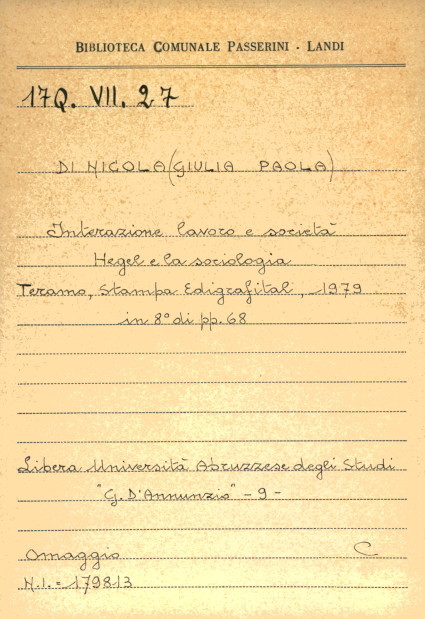 BIBLIOTECA COMUNALE PASSERINI - LANDI
17Q. VII. 27
DI NICOLA (GIULIA PAOLA)
Interazione lavoro e società
Hegel e la sociologia
Teramo, Stampa Edigrafital, 1979
in 8° di pp. 68
Libera Università Abruzzese degli Studi
"G. D'Annunzio" - 9 -
Omaggio C
N.I. = 179813